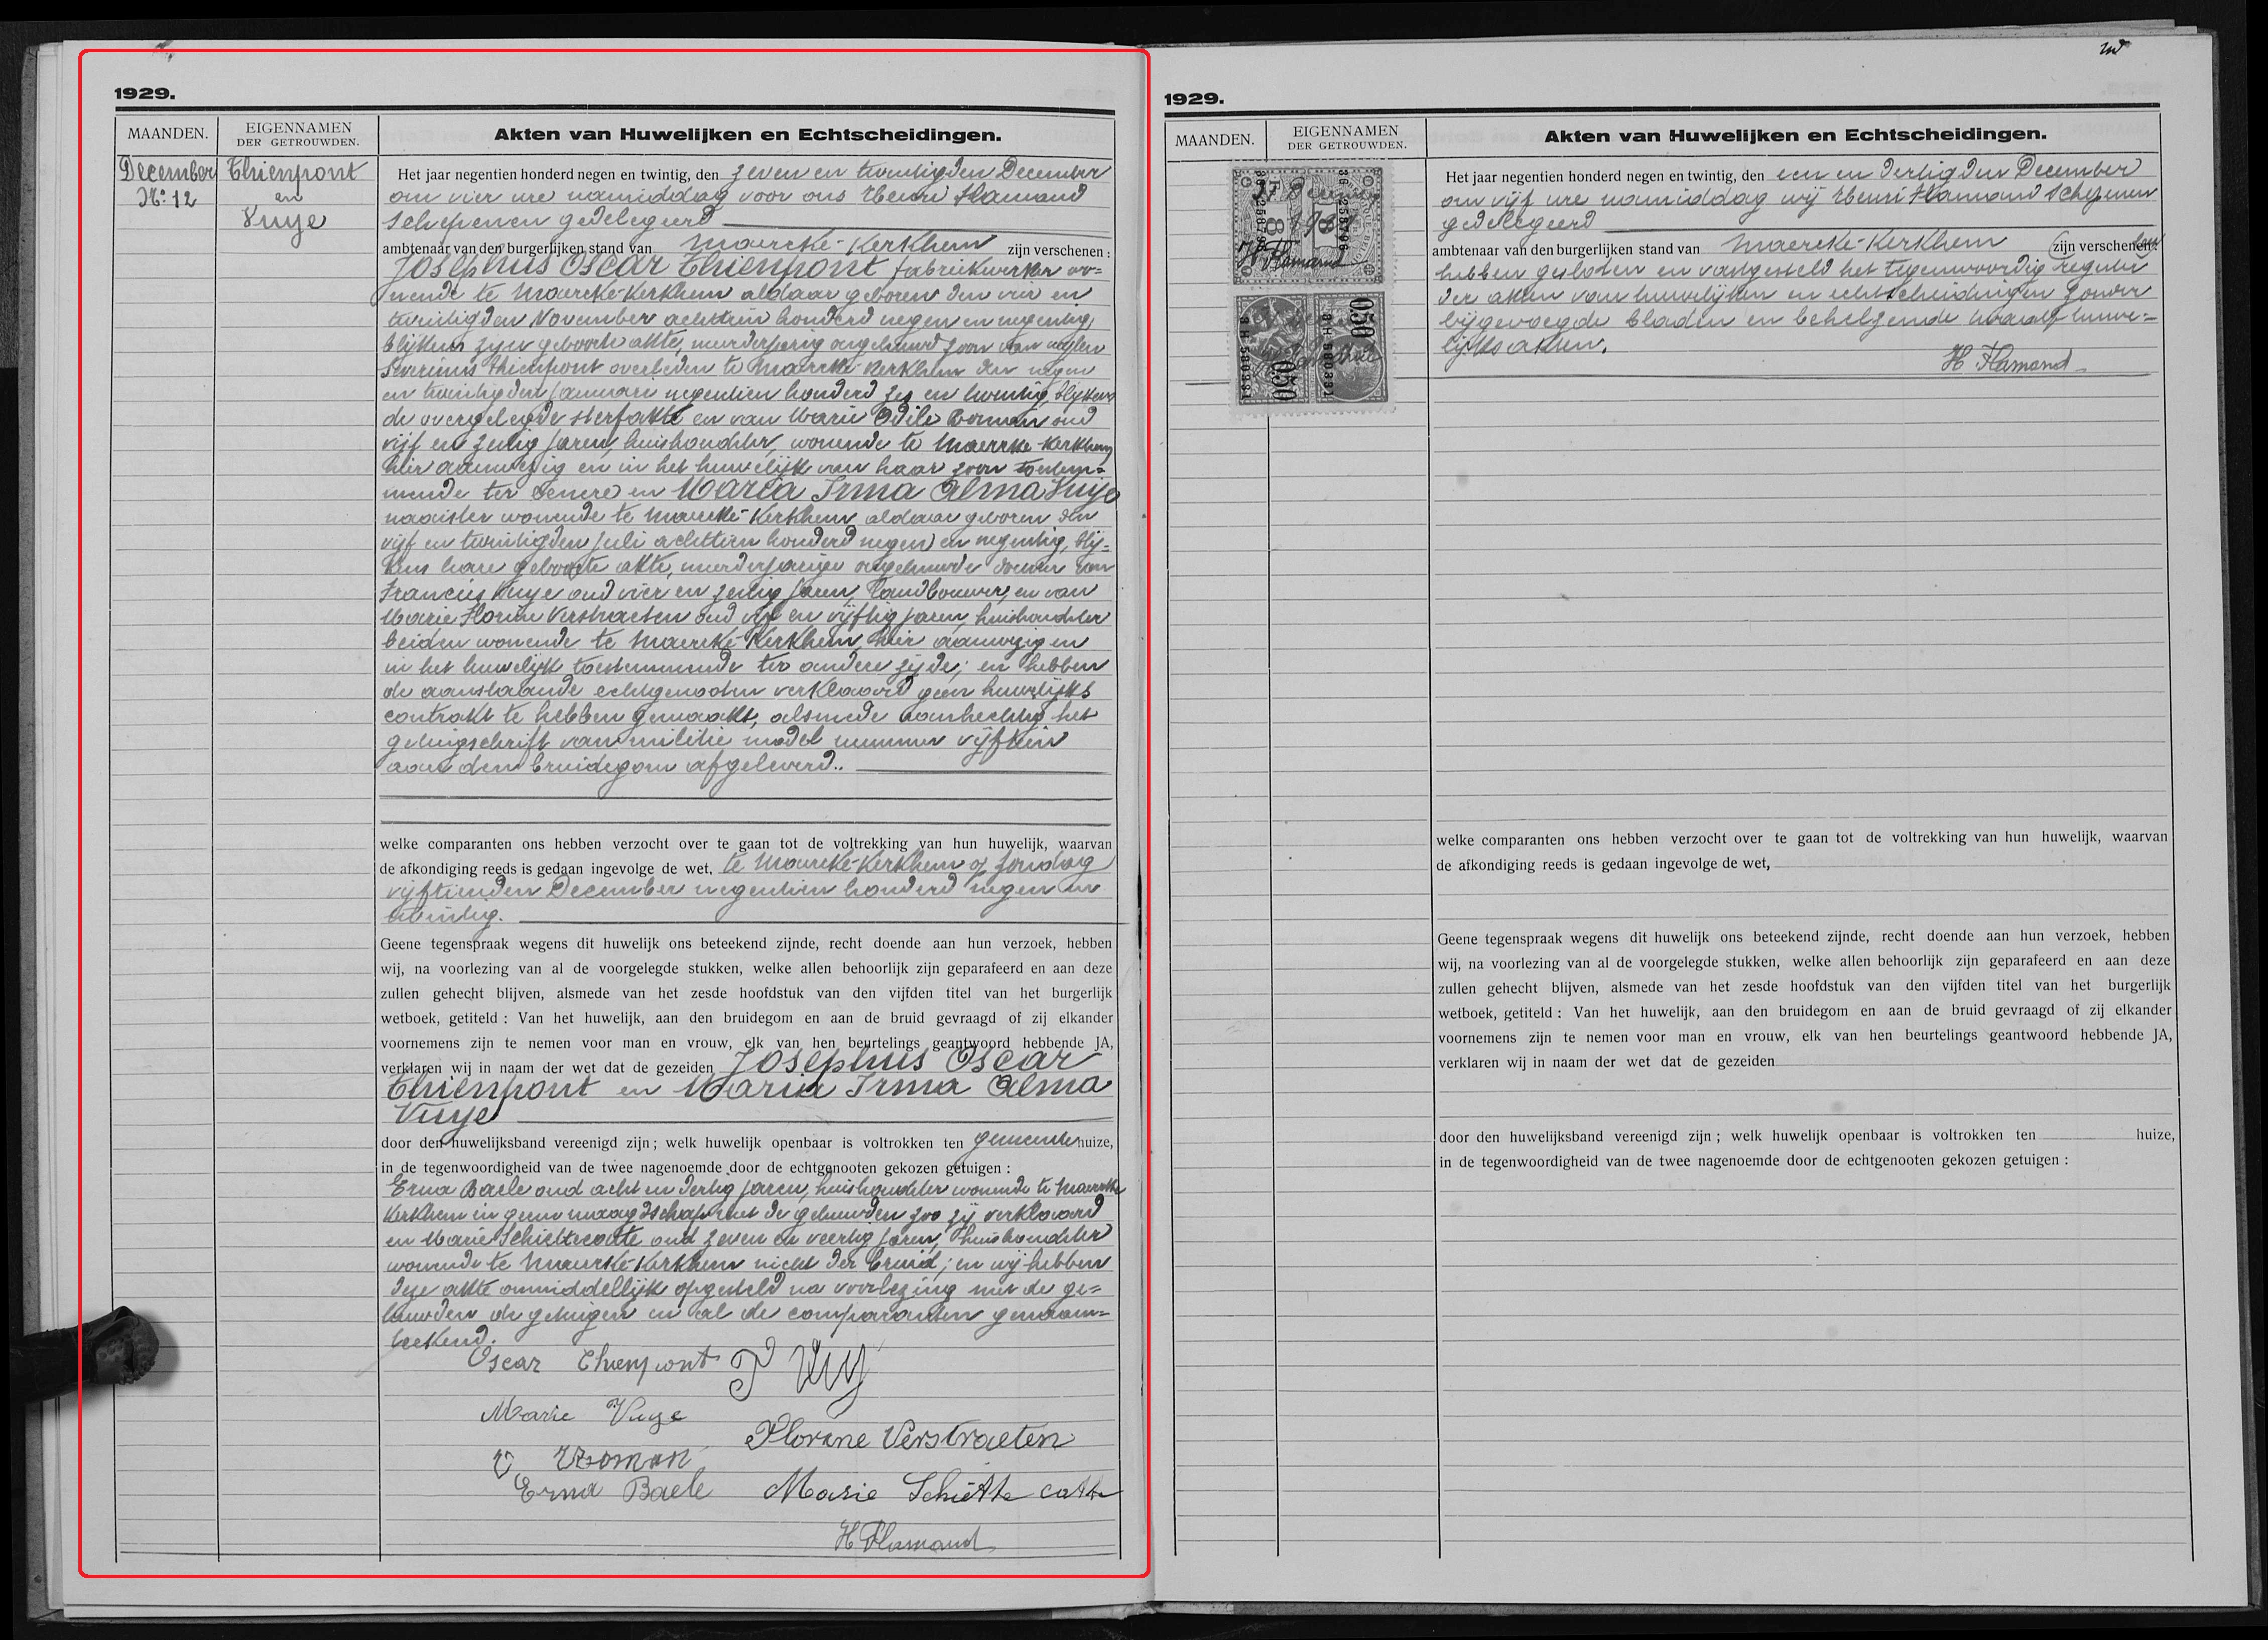 1929.
MAANDEN.
EIGENNAMEN
DER GETROUWDEN.
Akten van Huwelijken en Echtscheidingen.
December
No: 12
Thienpont
en
Vuye
Het jaar negentien honderd negen en twintig, den zeven en twintigden December
om vier ure namiddag voor ons Henri Flamand
Schepenen gedelegeerd
ambtenaar van den burgerlijken stand van Maercke-Kerkhem zijn verschenen :
Josephus Oscar Thienpont fabriekwerker wo=
nende te Maercke-Kerkhem aldaar geboren den vier en
twintigden November achttien honderd negen en negentig,
blijkens zijn geboorte akte, meerderjarig ongehuwd zoon van wijlen
Severinus Thienpont overleden te Maercke-Kerkhem den negen
en twintigden Januari negentien honderd zes en twintig, blijkens
de overgelegde sterfakte en van Marie Odile Boman oud
vijf en zestig jaren, huishoudster, wonende te Maercke-Kerkhem
hier aanwezig en in het huwelijk van haar zoon toestem=
mende ter eenere en Maria Irma Alma Vuye
naaister wonende te Maercke-Kerkhem aldaar geboren den
vijf en twintigden Juli achttien honderd negen en negentig, blij=
kens hare geboorte akte, meerderjarige ongehuwde dochter van
Francies Vuye oud vier en zestig jaren, landbouwer, en van
Marie Florine Verstraeten oud vijf en vijftig jaren, huishoudster
beiden wonende te Maercke-Kerkhem, hier aanwezig en
in het huwelijk toestemmende ter andere zijde; en hebben
de aanstaande echtgenooten verklaard geen huwelijks
contrakt te hebben gemaakt, alsmede aanhechtig het
getuigschrift van militie model nummer vijftien
aan den bruidegom afgeleverd..
welke comparanten ons hebben verzocht over te gaan tot de voltrekking van hun huwelijk, waarvan
de afkondiging reeds is gedaan ingevolge de wet, te Maercke-Kerkhem op zondag
vijftienden December negentien honderd negen en
twintig.
Geene tegenspraak wegens dit huwelijk ons beteekend zijnde, recht doende aan hun verzoek, hebben
wij, na voorlezing van al de voorgelegde stukken, welke allen behoorlijk zijn geparafeerd en aan deze
zullen gehecht blijven, alsmede van het zesde hoofdstuk van den vijfden titel van het burgerlijk
wetboek, getiteld : Van het huwelijk, aan den bruidegom en aan de bruid gevraagd of zij elkander
voornemens zijn te nemen voor man en vrouw, elk van hen beurtelings geantwoord hebbende JA,
verklaren wij in naam der wet dat de gezeiden Josephus Oscar
Thienpont en Maria Irma Alma
Vuye
door den huwelijksband vereenigd zijn ; welk huwelijk openbaar is voltrokken ten gemeentehuize,
in de tegenwoordigheid van de twee nagenoemde door de echtgenooten gekozen getuigen :
Erna Baele oud acht en dertig jaren, huishoudster wonende te Maercke
Kerkhem in geene maagdschap met de gehuwden zoo zij verklaard
en Marie Schiettecatte oud zeven en veertig jaren, huishoudster
wonende te Maercke-Kerkhem nicht der bruid; en wij hebben
deze akte onmiddellijk opgesteld na voorlezing met de ge=
huwden de getuigen en al de comparanten genaam=
teekend.
Oscar Thienpont
Marie Vuye
Florine Verstraeten
O Boman
Erna Baele Marie Schiettecatte
H Flamand
1929.
MAANDEN.
EIGENNAMEN
DER GETROUWDEN.
Akten van Huwelijken en Echtscheidingen.
H Flamand
Het jaar negentien honderd negen en twintig, den een en dertigden December
om vijf ure namiddag wij Henri Flamand Schepenen
gedelegeerd
ambtenaar van den burgerlijken stand van Maercke-Kerkhem zijn verschenen:
hebben gesloten en vastgesteld het tegenwoordig register
der akten van huwelijken en echtscheidingen zonder
bijgevoegde bladen en behelzende twaalf huwe=
lijks akten.
H Flamand
welke comparanten ons hebben verzocht over te gaan tot de voltrekking van hun huwelijk, waarvan
de afkondiging reeds is gedaan ingevolge de wet,
Geene tegenspraak wegens dit huwelijk ons beteekend zijnde, recht doende aan hun verzoek, hebben
wij, na voorlezing van al de voorgelegde stukken, welke allen behoorlijk zijn geparafeerd en aan deze
zullen gehecht blijven, alsmede van het zesde hoofdstuk van den vijfden titel van het burgerlijk
wetboek, getiteld : Van het huwelijk, aan den bruidegom en aan de bruid gevraagd of zij elkander
voornemens zijn te nemen voor man en vrouw, elk van hen beurtelings geantwoord hebbende JA,
verklaren wij in naam der wet dat de gezeiden
door den huwelijksband vereenigd zijn ; welk huwelijk openbaar is voltrokken ten huize,
in de tegenwoordigheid van de twee nagenoemde door de echtgenooten gekozen getuigen :